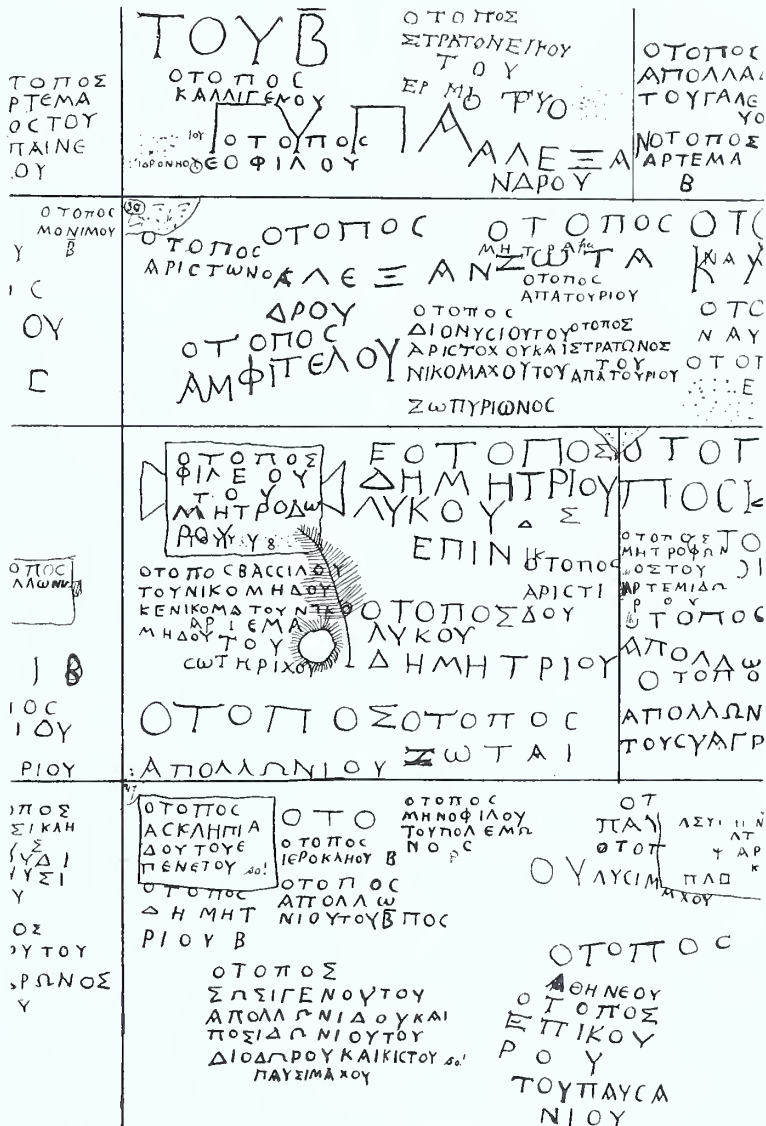 ΤΟΠΟΣ
ΡΤΕΜΑ
ΟϹΤΟΥ
ΠΑΙΝΕ
ΟΥ
ΤΟΥΒ̅
ΟΤΟΠΟϹ
ΚΑΛΛΙΓΕΝΟΥ
ΟΤΟΠΟϹ
ΕΟΦΙΛΟΥ
ΟΤΟΠΟΣ
ΣΤΡΑΤΟΝΕΙΚΟΥ
ΤΟΥ
ΑΛΕΞΑ
ΝΔΡΟΥ
ΟΤΟΠΟϹ
ΑΠΟΛΛΑ
ΤΟΥΓΑΛΕ
ΥΟ
ΝΟΤΟΠΟΣ
ΑΡΤΕΜΑ
Β
ΟΤΟΠΟϹ
ΜΟΝΙΜΟΥ
Β̅
Υ
ΙϹ
ΟΥ
ΟΤΟΠΟϹ
ΑΡΙΣΤΩΝΟϹ
ΟΤΟΠΟϹ
ΑΛΕΞΑΝ
ΔΡΟΥ
ΟΤΟΠΟϹ
ΑΜΦΙΤΕΛΟΥ
ΟΤΟΠΟϹ
ΖΩΤΑ
ΟΤΟΠΟϹ
ΑΠΑΤΟΥΡΙΟΥ
ΟΤΟΠΟϹ
ΔΙΟΝΥϹΙΟΥΤΟΥ
ΑΡΙϹΤΟΧΟΥΚΑΙ
ΝΙΚΟΜΑΧΟΥΤΟΥ
ΖΩΠΥΡΙΩΝΟϹ
ΟΤΟΠΟΣ
ΣΤΡΑΤΩΝΟΣ
ΤΟΥ
ΑΠΑΤΟΥΡΙΟΥ
ΟΤϹ
ΝΑΥ
ΟΤΟΠ
Ε
ΟΤΟΠΟΣ
ΦΙΛΕΟΥ
ΤΟΥ
ΜΗΤΡΟΔΩ
ΡΟΥ
ΕΟΤΟΠΟΣ
ΔΗΜΗΤΡΙΟΥ
ΛΥΚΟΥ
ΕΠΙΝΙΚ
ΟΤΟΠΟϹ
ΑΡΙϹΤΙ
ΔΟΥ
ΟΤΟΠΟϹΒΑϹϹΙΛΟΥ
ΤΟΥΝΙΚΟΜΗΔΟΥ
ΚΕΝΙΚΟΜΑΤΟΥΝΙΚΟ
ΜΗΔΟΥ
ΑΡΤΕΜΑ
ΤΟΥ
ϹΩΤΗΡΙΧΟΥ
ΟΤΟΠΟΣ
ΛΥΚΟΥ
ΔΗΜΗΤΡΙΟΥ
ΟΤΟΠΟΣ
ΑΠΟΛΛΩΝΙΟΥ
ΟΤΟΠΟϹ
ΖΩΤΑΙ
ΟΤΟΠΟΣ
ΜΗΤΡΟΦΩΝ
ΟΣΤΟΥ
ΑΡΤΕΜΙΔΩ
ΡΟΥ
ΟΤΟΠΟϹ
ΑΠΟΛΛΩ
ΟΤΟΠΟ
ΑΠΟΛΛΩΝ
ΤΟΥϹΥΑΓΡ
ΟΠΟϹ
ΙΒ
ΙΟϹ
ΙΔΟΥ
ΡΙΟΥ
ΟΠΟΣ
ΣΙΚΛΗ
Σ
ΥΔΙ
ΥΣΙ
Υ
ΟΣ
ΟΥΤΟΥ
ΩΡΩΝΟΣ
Υ
ΟΤΟΠΟϹ
ΑϹΚΛΗΠΙΑ
ΔΟΥΤΟΥΕ
ΠΕΝΕΤΟΥ so!
ΟΤΟΠΟϹ
ΔΗΜΗΤ
ΡΙΟΥΒ
ΟΤΟ
ΟΤΟΠΟϹ
ΙΕΡΟΚΛΗΟΥ Β
ΟΤΟΠΟϹ
ΑΠΟΛΛΩ
ΝΙΟΥΤΟΥΒ̅ΠΟϹ
ΟΤΟΠΟϹ
ΜΗΝΟΦΙΛΟΥ
ΤΟΥΠΟΛΕΜΩ
ΝΟϹ
ΟΤ
ΠΑΥ
ΟΤΟΠ
ΟΥΛΥϹΙΜ
ΑΧΟΥ
ΟΤΟΠΟΣ
ΣΩΣΙΓΕΝΟΥΤΟΥ
ΑΠΟΛΛΩΝΙΔΟΥΚΑΙ
ΠΟΣΙΔΩΝΙΟΥΤΟΥ
ΔΙΟΔΩΡΟΥΚΑΙΚΙϹΤΟΥ so!
ΠΑΥΣΙΜΑΧΟΥ
ΟΤΟΠΟϹ
ΑΘΗΝΕΟΥ
ΟΤΟΠΟΣ
ΕΠΙΚΟΥ
ΡΟΥ
ΤΟΥΠΑΥϹΑ
ΝΙΟΥ